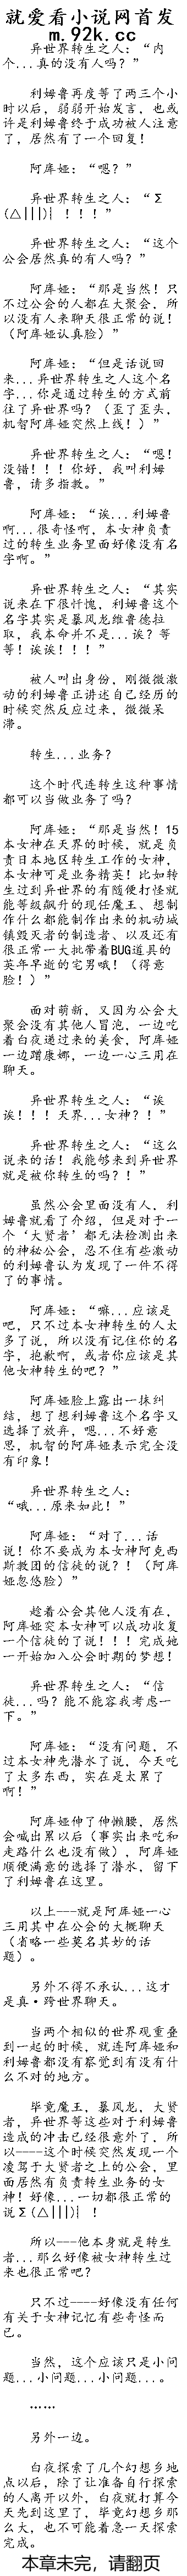 就爱看小说网首发
m.92k.cc
异世界转生之人：“内
个...真的没有人吗？”
利姆鲁再度等了两三个小
时以后，弱弱开始发言，也或
许是利姆鲁终于成功被人注意
了，居然有了一个回复！
阿库娅：“嗯？”
异世界转生之人：“Σ
(△|||)┤！！！”
异世界转生之人：“这个
公会居然真的有人吗？”
阿库娅：“那是当然！只
不过公会的人都在大聚会，所
以没有人来聊天很正常的说！
（阿库娅认真脸）”
阿库娅：“但是话说回
来...异世界转生之人这个名
字...你是通过转生的方式前
往了异世界吗？（歪了歪头，
机智阿库娅突然上线！）”
异世界转生之人：“嗯！
没错！！！你好，我叫利姆
鲁，请多指教。”
阿库娅：“诶...利姆鲁
啊...很奇怪啊，本女神负责
过的转生业务里面好像没有名
字啊。”
异世界转生之人：“其实
说来在下很忏愧，利姆鲁这个
名字其实是暴风龙维鲁德拉
取，我本命并不是...诶？等
等！诶诶！！！”
被人叫出身份，刚微微激
动的利姆鲁正讲述自己经历的
时候突然反应过来，微微呆
滞。
转生...业务？
这个时代连转生这种事情
都可以当做业务了吗？
阿库娅：“那是当然！15
本女神在天界的时候，就是负
责日本地区转生工作的女神，
本女神可是业务精英！比如转
生过到异世界的有随便打怪就
能等级飙升的现任魔王、想制
作什么都能制作出来的机动城
镇毁灭者的制造者、以及还有
很正常一大批带着BUG道具的
英年早逝的宅男哦！（得意
脸！）”
面对萌新，又因为公会大
聚会没有其他人冒泡，一边吃
着白夜递过来的美食，阿库娅
一边蹭康娜，一边一心三用在
聊天。
异世界转生之人：“诶
诶！！！天界...女神？！”
异世界转生之人：“这么
说来的话！我能够来到异世界
就是被你转生的吗？！”
虽然公会里面没有人，利
姆鲁就看了介绍，但是对于一
个‘大贤者’都无法检测出来
的神秘公会，忍不住有些激动
的利姆鲁认为发现了一件不得
了的事情。
阿库娅：“嘛...应该是
吧，只不过本女神转生的人太
多了说，所以没有记住你的名
字，抱歉啊，或者你应该是其
他女神转生的吧？”
阿库娅脸上露出一抹纠
结，想了想利姆鲁这个名字又
选择了放弃，嗯...不好意
思，机智的阿库娅表示完全没
有印象！
异世界转生之人：
“哦...原来如此！”
阿库娅：“对了...话
说！你不要成为本女神阿克西
斯教团的信徒的说？！（阿库
娅忽悠脸）”
趁着公会其他人没有在，
阿库娅突本女神可以成功收复
一个信徒的了说！！！完成她
一开始加入公会时期的梦想！
异世界转生之人：“信
徒...吗？能不能容我考虑一
下。”
阿库娅：“没有问题，不
过本女神先潜水了说，今天吃
了太多东西，实在是太累了
啊！”
阿库娅伸了伸懒腰，居然
会喊出累以后（事实出来吃和
走路什么也没有做），阿库娅
顺便满意的选择了潜水，留下
了利姆鲁在这里。
以上---就是阿库娅一心
三用其中在公会的大概聊天
（省略一些莫名其妙的话
题）。
另外不得不承认...这才
是真·跨世界聊天。
当两个相似的世界观重叠
到一起的时候，就连阿库娅和
利姆鲁都没有察觉到有没有什
么不对的地方。
毕竟魔王，暴风龙，大贤
者，异世界等这些对于利姆鲁
造成的冲击已经很意外了，所
以----这个时候突然发现一个
凌驾于大贤者之上的公会，里
面居然有负责转生业务的女
神！好像...一切都很正常的
说Σ(△|||)┤！
所以---他本身就是转生
者...那么好像被女神转生过
来也很正常吧？
只不过----好像没有任何
有关于女神记忆有些奇怪而
已。
当然，这个应该只是小问
题...小问题...小问题...。
……
另外一边。
白夜探索了几个幻想乡地
点以后，除了让准备自行探索
的人离开以外，白夜就打算今
天先到这里了，毕竟幻想乡那
么大，也不可能着急一天探索
完成。
本章未完，请翻页